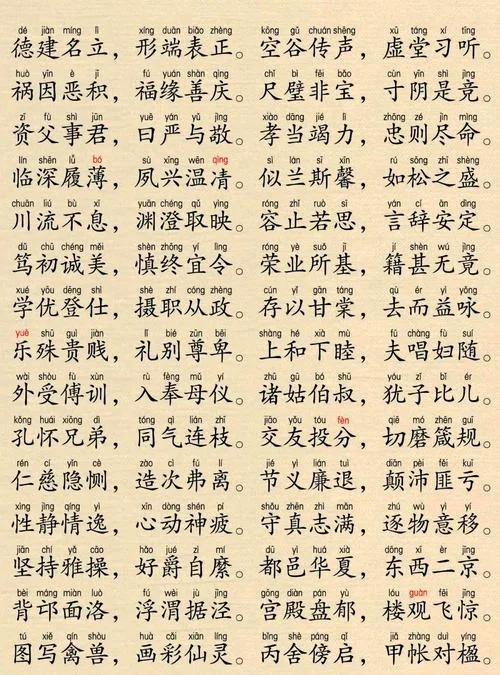 dé jiàn míng lì xíng duān biǎo zhèng kōng gǔ chuán shēng xū táng xí tīng
德建名立，形端表正。空谷传声，虚堂习听。
huò yīn è jī fú yuán shàn qìng chǐ bì fēi bǎo cùn yīn shì jìng
祸因恶积，福缘善庆。尺璧非宝，寸阴是竞。
zī fù shì jūn yuē yán yǔ jìng xiào dāng jié lì zhōng zé jìn mìng
资父事君，曰严与敬。孝当竭力，忠则尽命。
lín shēn lǚ bó sù xīng wēn qìng sì lán sī xīn rú sōng zhī shèng
临深履薄，夙兴温凊。似兰斯馨，如松之盛。
chuān liú bù xī yuān chéng qǔ yìng róng zhǐ ruò sī yán cí ān dìng
川流不息，渊澄取映。容止若思，言辞安定。
dǔ chū chéng měi shèn zhōng yí lìng róng yè suǒ jī jí shèn wú jìng
笃初诚美，慎终宜令。荣业所基，籍甚无竟。
xué yōu dēng shì shè zhí cóng zhèng cún yǐ gān táng qù ér yì yǒng
学优登仕，摄职从政。存以甘棠，去而益咏。
yuè shū guì jiàn lǐ bié zūn bēi shàng hé xià mù fū chàng fù suí
乐殊贵贱，礼别尊卑。上和下睦，夫唱妇随。
wài shòu fù xùn rù fèng mǔ yí zhū gū bó shū yóu zǐ bǐ ér
外受傅训，入奉母仪。诸姑伯叔，犹子比儿。
kǒng huái xiōng dì tóng qì lián zhī jiāo yǒu tóu fèn qiē mó zhēn guī
孔怀兄弟，同气连枝。交友投分，切磨箴规。
rén cí yǐn cè zào cì fú lí jié yì lián tuì diān pèi fěi kuī
仁慈隐恻，造次弗离。节义廉退，颠沛匪亏。
xìng jìng qíng yì xīn dòng shén pí shǒu zhēn zhì mǎn zhú wù yì yí
性静情逸，心动神疲。守真志满，逐物意移。
jiān chí yǎ cāo hǎo jué zì mí dū yì huá xià dōng xī èr jīng
坚持雅操，好爵自縻。都邑华夏，东西二京。
bèi máng miàn luò fú wèi jù jīng gōng diàn pán yù lóu guàn fēi jīng
背邙面洛，浮渭据泾。宫殿盘郁，楼观飞惊。
tú xiě qín shòu huà cǎi xiān líng bǐng shè bàng qǐ jiǎ zhàng duì yíng
图写禽兽，画彩仙灵。丙舍傍启，甲帐对楹。